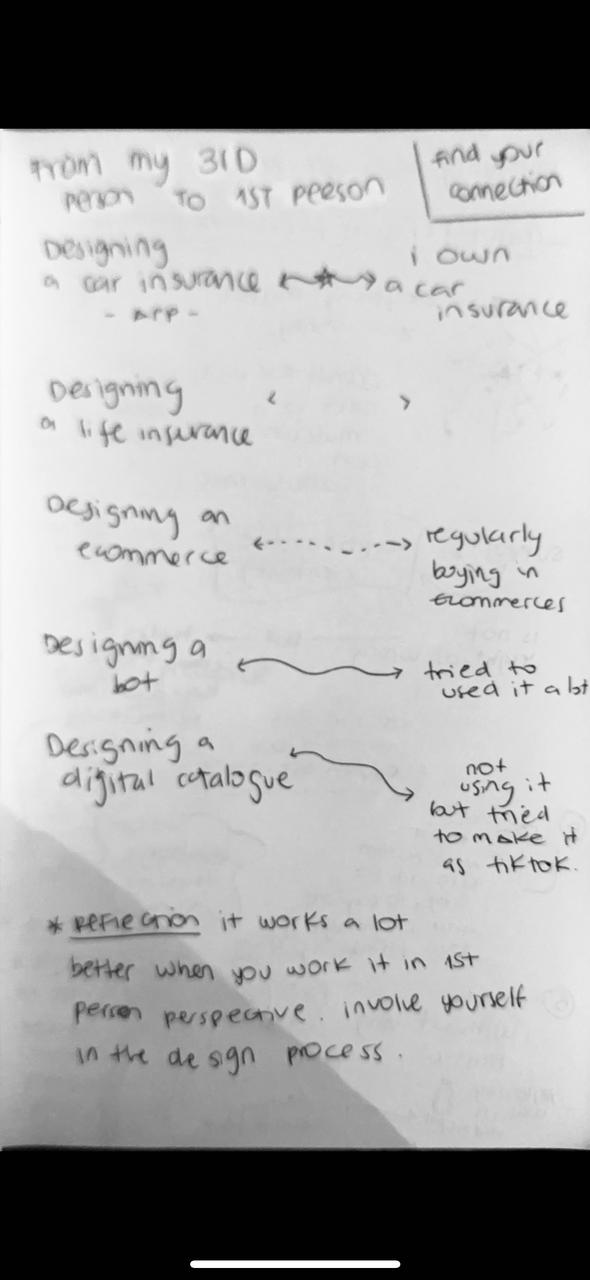 From my 3rd
person to 1st person
find your
connection
Designing
a car insurance
- App -
i own
a car
insurance
Designing
a life insurance
Designing an
ecommerce
regularly
buying in
ecommerces
Designing a
bot
tried to
used it a lot
Designing a
digital catalogue
not
using it
but tried
to make it
as tiktok.
* Reflection it works a lot
better when you work it in 1st
person perspective. involve yourself
in the design process.